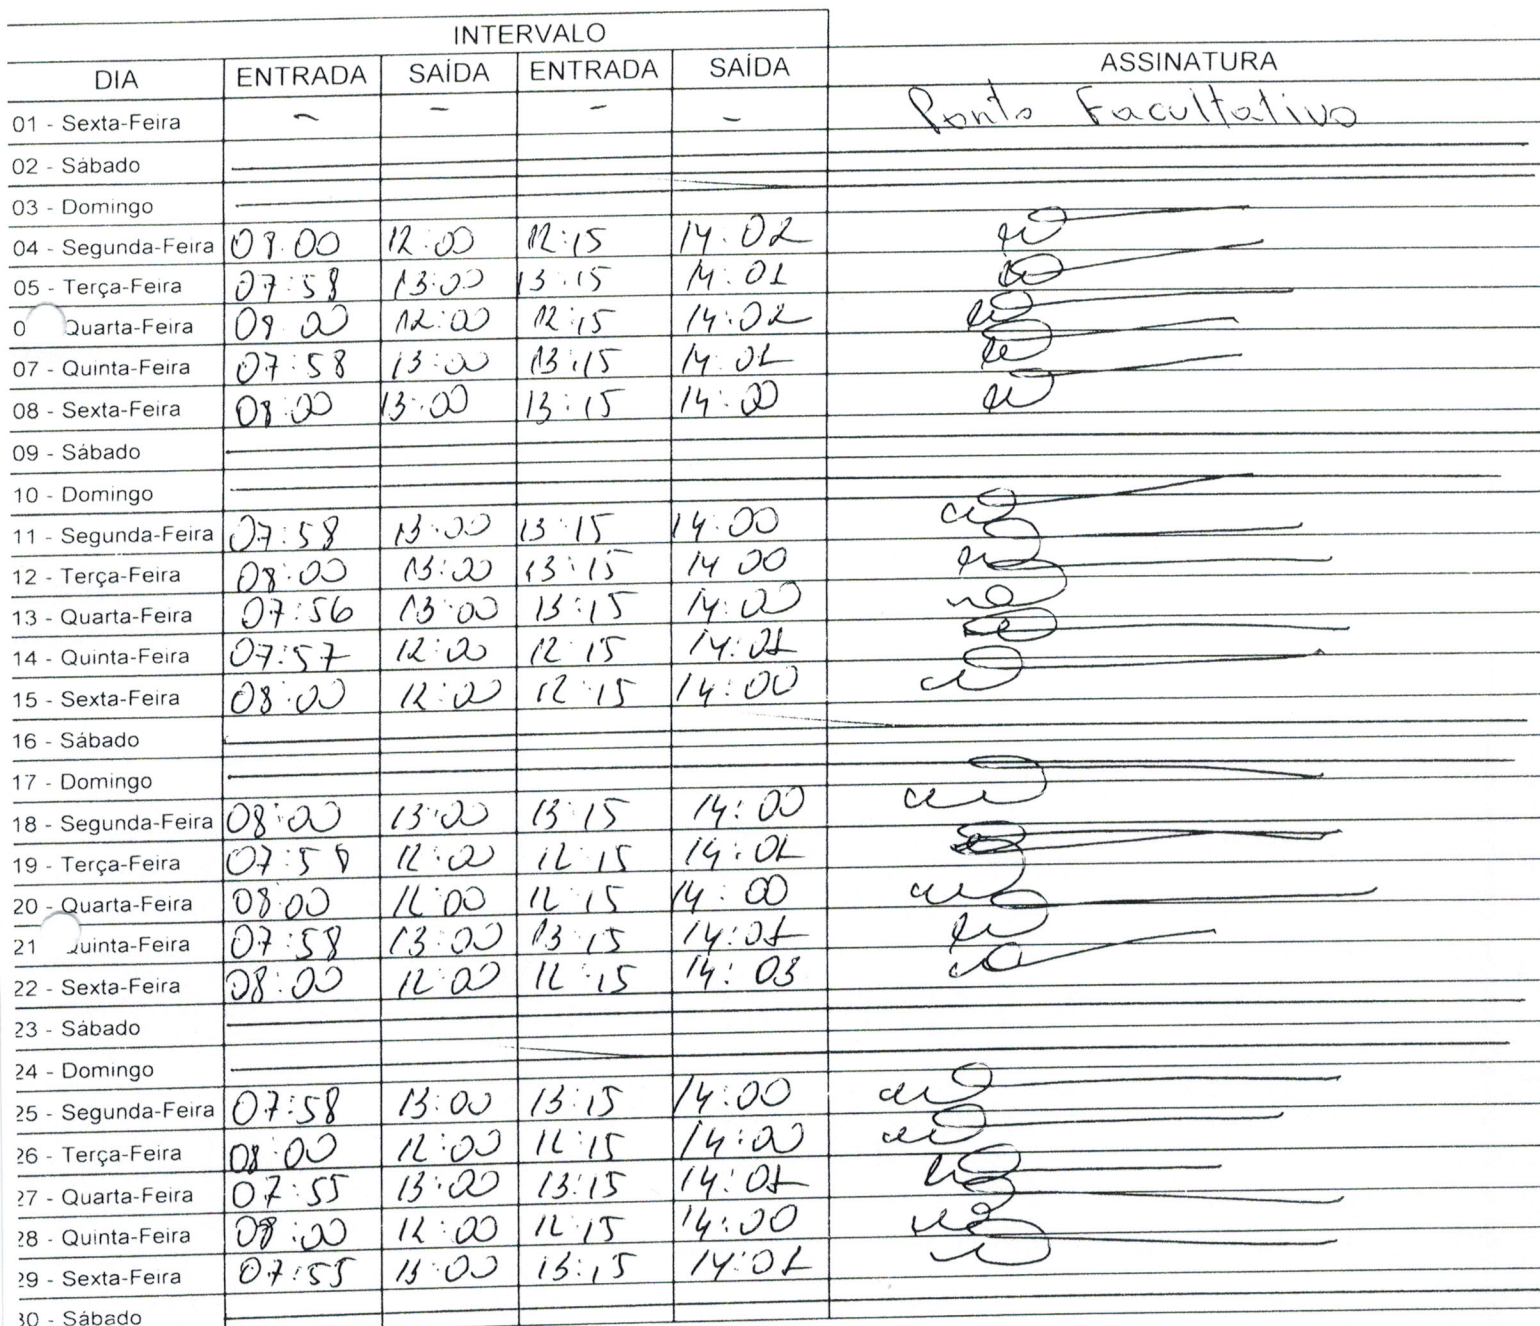 INTERVALO
DIA ENTRADA SAÍDA ENTRADA SAÍDA ASSINATURA
01 - Sexta-Feira - - - - Ponto Facultativo
02 - Sábado
03 - Domingo
04 - Segunda-Feira 08:00 12:00 12:15 14:02
05 - Terça-Feira 07:58 13:00 13:15 14:01
0 Quarta-Feira 08:00 12:00 12:15 14:02
07 - Quinta-Feira 07:58 13:00 13:15 14:01
08 - Sexta-Feira 08:00 13:00 13:15 14:00
09 - Sábado
10 - Domingo
11 - Segunda-Feira 07:58 13:00 13:15 14:00
12 - Terça-Feira 08:00 13:00 13:15 14 00
13 - Quarta-Feira 07:56 13:00 13:15 14:00
14 - Quinta-Feira 07:57 12:00 12:15 14:01
15 - Sexta-Feira 08:00 12:00 12:15 14:00
16 - Sábado
17 - Domingo
18 - Segunda-Feira 08:00 13:00 13:15 14:00
19 - Terça-Feira 07:58 12:00 12:15 14:01
20 - Quarta-Feira 08:00 12:00 12:15 14:00
21 Quinta-Feira 07:58 13:00 13:15 14:01
22 - Sexta-Feira 08:00 12:00 12:15 14:03
23 - Sábado
24 - Domingo
25 - Segunda-Feira 07:58 13:00 13:15 14:00
26 - Terça-Feira 08:00 12:00 12:15 14:00
27 - Quarta-Feira 07:55 13:00 13:15 14:01
28 - Quinta-Feira 08:00 12:00 12:15 14:00
29 - Sexta-Feira 07:55 13:00 13:15 14:01
30 - Sábado